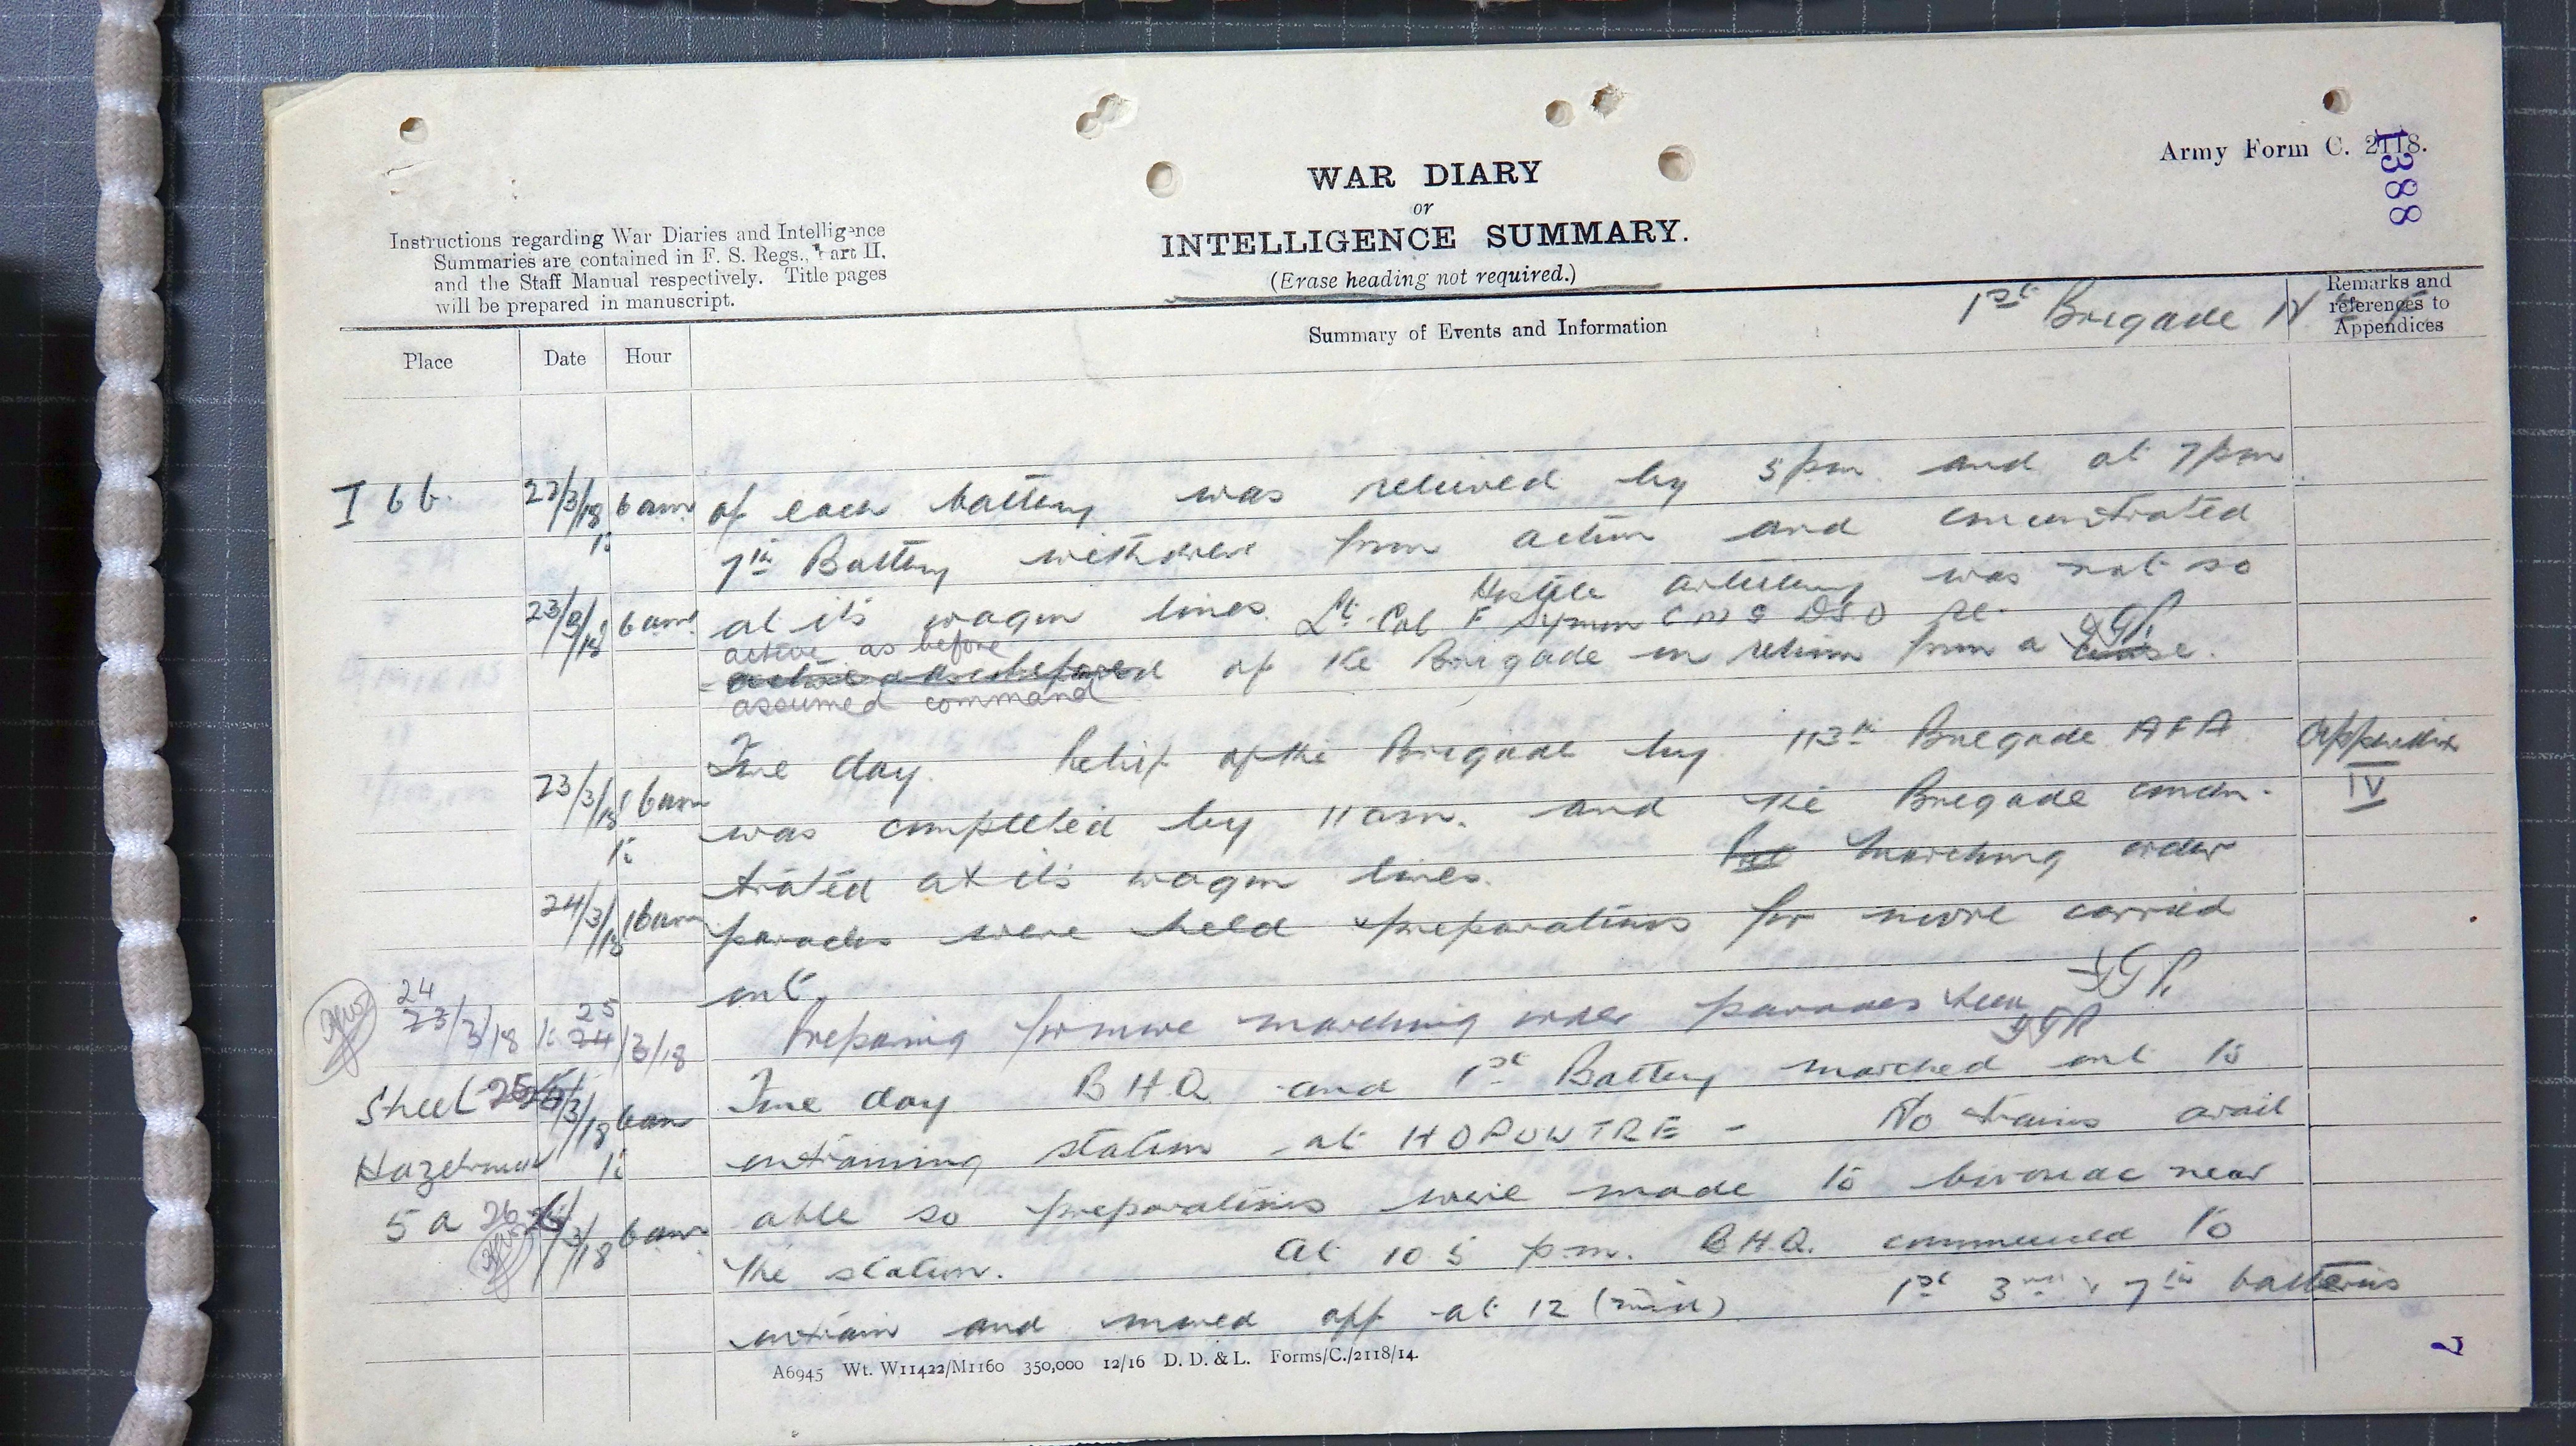 Army Form C. 2118.
1388
WAR DIARY
or
INTELLIGENCE SUMMARY.
(Erase heading not required.)
Instructions regarding War Diaries and Intelligence
Summaries are contained in F. S. Regs., Part II.
and the Staff Manual respectively. Title pages
will be prepared in manuscript.
1st Brigade
Remarks and
references to
Appendices
Summary of Events and Information
Place Date Hour
I 6 b. 22/3/18 6 am of each battery was relieved by 5 pm and at 7 pm
to 7th Battery withdrew from action and concentrated
Hostile artillery was not so
23/3/18 6 am at its wagon lines. Lt. Col F Symon CMG DSO
active as before
active as before of the Brigade on return from a course.
assumed command
Fine day. Relief of the Brigade by 113th Brigade AFA Appendix
23/3/18 6 am was completed by 11 am. and the Brigade concen- IV
to trated at its wagon lines. Marching order
24/3/18 6 am parades were held & preparations for move carried
out
24 25
23/3/18 to 24/3/18 Preparing for move marching order parades
Steel 25/3/18 6 am Fine day B.H.Q. and 1st Battery marched out to
Hazebrouck to entraining station at HOPOUTRE - No trains avail
able so preparations were made to bivouac near
5a 26/3/18 6 am the station. At 10 5 p.m. B.H.Q. commenced to
entrain and moved off at 12 (mid) 1st 3rd & 7th batteries
A6945 Wt. W11422/M1160 350,000 12/16 D. D. & L. Forms/C./2118/14.
7